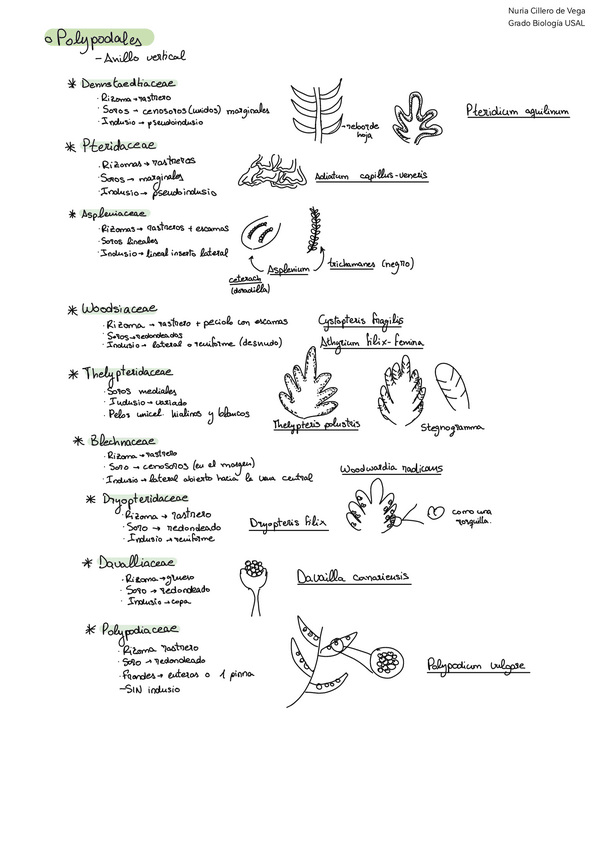 Nuria Cillero de Vega
Grado Biología USAL
o Polypodales
- Anillo vertical
* Dennstaedtiaceae
· Rizoma → rastrero
· Soros → cenosoros (unidos) marginales
· Indusio → pseudoindusio
→ reborde hoja
Pteridium aquilinum
* Pteridaceae
· Rizomas → rastreros
· Soros → marginales
· Indusio → pseudoindusio
Adiatum capillus-veneris
* Aspleniaceae
· Rizomas → rastreros + escamas
· Soros lineales
· Indusio → lineal inserto lateral
Asplenium
trichamanes (negro)
ceterach
(doradilla)
* Woodsiaceae
· Rizoma → rastrero + peciolo con escamas
· Soros → redondeados
· Indusio → lateral o reniforme (desnudo)
Cystopteris fragilis
Athyrium filix-femina
* Thelypteridaceae
· Soros mediales
· Indusio → variado
· Pelos unicel. hialinos y blancos
Thelypteris palustris
Stegnogramma
* Blechnaceae
· Rizoma → rastrero
· Soro → cenosoros (en el margen)
· Indusio → lateral abierto hacia la vena central
Woodwardia radicans
* Dryopteridaceae
· Rizoma → rastrero
· Soro → redondeado
· Indusio → reniforme
Dryopteris filix
como una
horquilla.
* Davalliaceae
· Rizoma → grueso
· Soro → redondeado
· Indusio → copa
Davailla canariensis
* Polypodiaceae
· Rizoma rastrero
· Soro → redondeado
· Frondes → enteros o 1 pinna
- SIN indusio
Polypodium vulgare